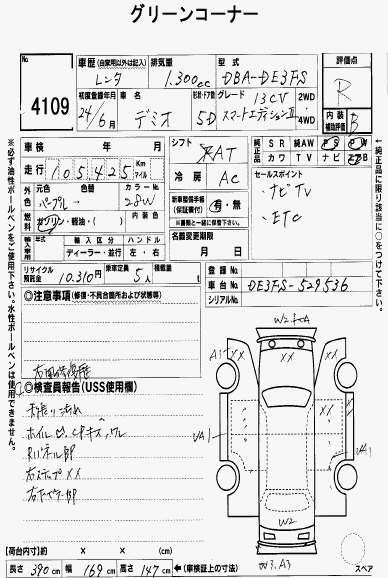 グリーンコーナー
No
4109
車歴 (自家用以外は記入)
レンタ
排気量
1.300cc
型式
DBA-DE3FS
評価点
R
初度登録年月
24/6月
車名
デミオ
形状・ドア数
5D
グレード
13CV
スマートエディションⅡ
2WD
4WD
内装
補助評価
B
車検 年 月
走行 105425 Km マイル
シフト
AT
冷房
AC
純正品
SR 純AW PS PW
カワ TV ナビ エアB
外装
元色
パープル
色替
カラーNo.
28W
燃料
ガソリン・軽油・( )
内装色
新車整備手帳
(保証書付)
有・無
セールスポイント
・ナビTV
・ETC
輸入車
年式
輸入区分
ディーラー・並行
ハンドル
左・右
名義変更期限
月 日
リサイクル預託金
10.310円
乗車定員
5人
積載量
登録No.
車台No.
DE3FS-529536
シリアルNo.
◎注意事項 (修復・不具合箇所および状態等)
◎検査員報告(USS使用欄)
天張り汚れ
右ステップXX
A1
XX
XX
VA1
VA1
W2
W3.A3
スペア
【荷台内寸】約 × × (cm)
長さ 390 cm 幅 169 cm 高さ 147 cm ←(車検証上の寸法)
※必ず油性ボールペンをご使用下さい。水性ボールペンは使用できません。
一純正品に限り該当に○をつけて下さい。